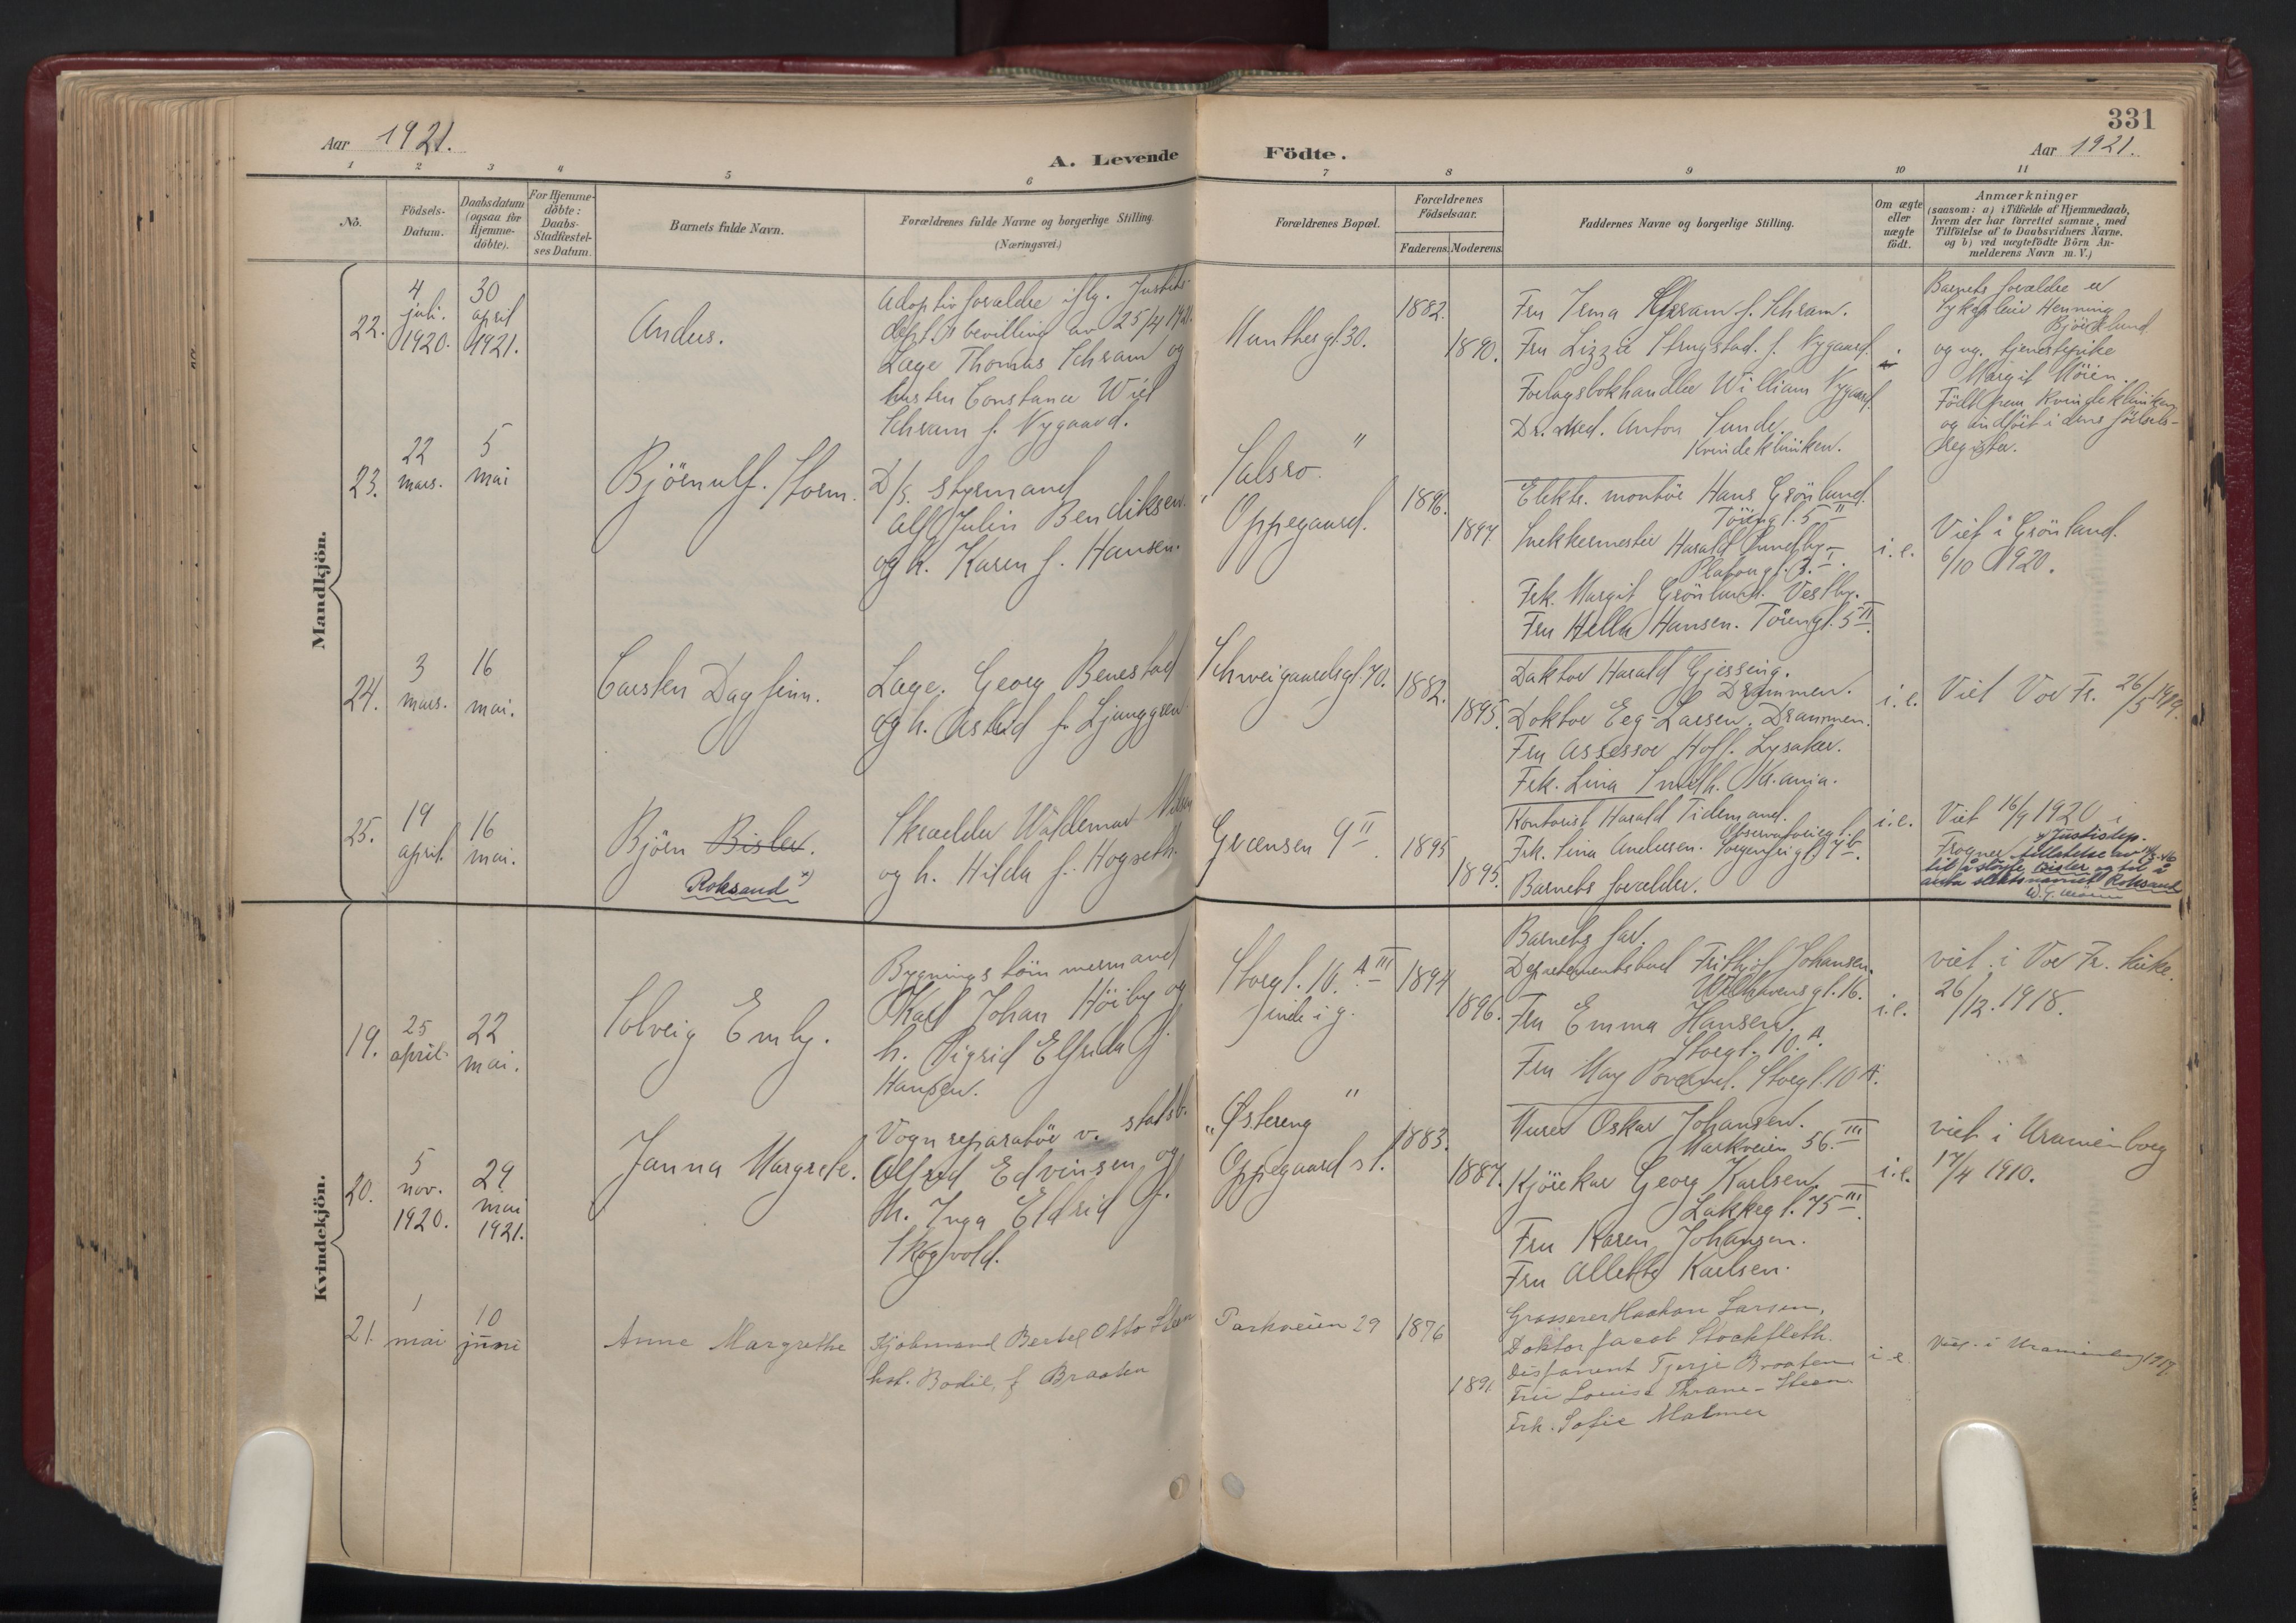 331
Aar 1921.
A. Levende Födte.
Aar 1921.
1 2 3 4 5 6 7 8 9 10 11
No.
Födsels-
Datum.
Daabsdatum
(ogsaa for
Hjemme-
döbte).
For Hjemme-
döbte:
Daabs-
Stadfæstel-
ses Datum.
Barnets fulde Navn.
Forældrenes fulde Navne og borgerlige Stilling.
(Næringsvei.)
Forældrenes Bopæl.
Forældrenes
Födselsaar.
Faderens.
Moderens.
Faddernes Navne og borgerlige Stilling.
Om ægte
eller
uægte
födt.
Anmærkninger
(saasom: a) i Tilfælde af Hjemmedaab,
hvem der har forrettet samme, med
Tilföielse af to Daabsvidners Navne,
og b) ved uægtefödte Börn An-
melderens Navn m. V.)
Mandkjön.
22.
4
juli.
1920.
30
april
1921.
Anders.
Adoptivforældre iflg. Justits-
dept.s bevilling av 25/4 1921.
Læge Thomas Schram og
hustru Constance Wiel
Schram f. Nygaard.
Munthesgt. 30.
1882.
1890.
Fru Irma Schram f. Schram.
Fru Lizzie Strugstad f. Nygaard.
Forlagsbokhandler William Nygaard.
Dr. med. Anton Sunde.
Kvindeklinikken.
Barnets forældre er
Henning
Björklund
og ug. tjenestepike
Margit Moien.
Födt paa Kvindeklinikken
og indfört i dens födsels-
register.
23.
22
mars.
5
mai
Björnulf Storm.
D/s. styrmand
Alf Julin Bendiksen
og h. Karen f. Hansen.
"Salsro"
Oppegaard.
1896.
1897
Elektr. montör Hans Grönlund.
Töiengt. 5 II
Snekkermester Harald Sundby
Platousgt. 3. I.
Frk. Margit Grönlund. Vestby.
Fru Hella Hansen. Töiengt. 5 II.
i.e.
Viet i Grönland.
6/10 1920.
24.
3
mars.
16
mai.
Carsten Dagfinn.
Læge Georg Benestad
og h. Astrid f. Ljunggren
Schweigaardsgt. 70.
1882.
1895.
Doktor Harald Gjessing.
Drammen.
Doktor Eeg-Larsen. Drammen.
Fru Assessor Hoff. Lysaker.
Frk. Lina Smith. Kr.ania.
i.e.
Viet Vor Fr. 26/5 1919.
25.
19
april.
16
mai.
Björn Bisler.
Roksand x)
Skrædder Waldemar Nilsen
og h. Hilda f. Hogseth.
Grænsen 9 II.
1895
1895.
Kontorist Harald Tidemand.
Observatoriegt.
Frk. Lina Andersen. Sorgenfrigt. 7 b.
Barnets forældre.
i.e.
Viet 16/9 1920 i
Frogner x) Justisdep.
tillatelse av
til å sløyfe Bisler og til å
anta slektsnavnet Roksand
Kvindekjön.
19.
25
april.
22
mai.
Solveig Emly.
Bygningstömmermand
Karl Johan Höiby og
h. Sigrid Elfrida f.
Hansen.
Storgt. 10. A III
inde i g.
1894
1896.
Barnets far.
Departementsbud Frithjof Johansen.
Welhavensgt. 16.
Fru Emma Hansen.
Storgt. 10. A.
Fru May Storgt. 10 A.
i.e.
viet i Vor Fr. kirke.
26/12. 1918.
20.
5
nov.
1920.
29
mai
1921.
Janna Margrete.
Vognreparatör v. statsb.
Alfred Edvinsen og
h. Inga Eldrid f.
Skogvold.
"Østereng"
Oppegaard st.
1883.
1887.
Murer Oskar Johansen.
Markveien 56. III
Kjörekar Georg Karlsen
Lakkegt. 75 III.
Fru Karen Johansen.
Fru Allette Karlsen.
i.e.
viet i Uranienborg
17/4 1910.
21.
1
mai
10
juni
Anne Margrethe
Kjöbmand Bertel Otto Steen
hst. Bodil f. Braaten
Parkveien 29
1876
1891
Grosserer Haakon Larsen,
Doktor Jacob Stockfleth.
Disponent Terje Braaten
Fru Louise Thrane-Steen
Frk. Sofie Malmer
i e.
Viet i Uranienborg 1917.